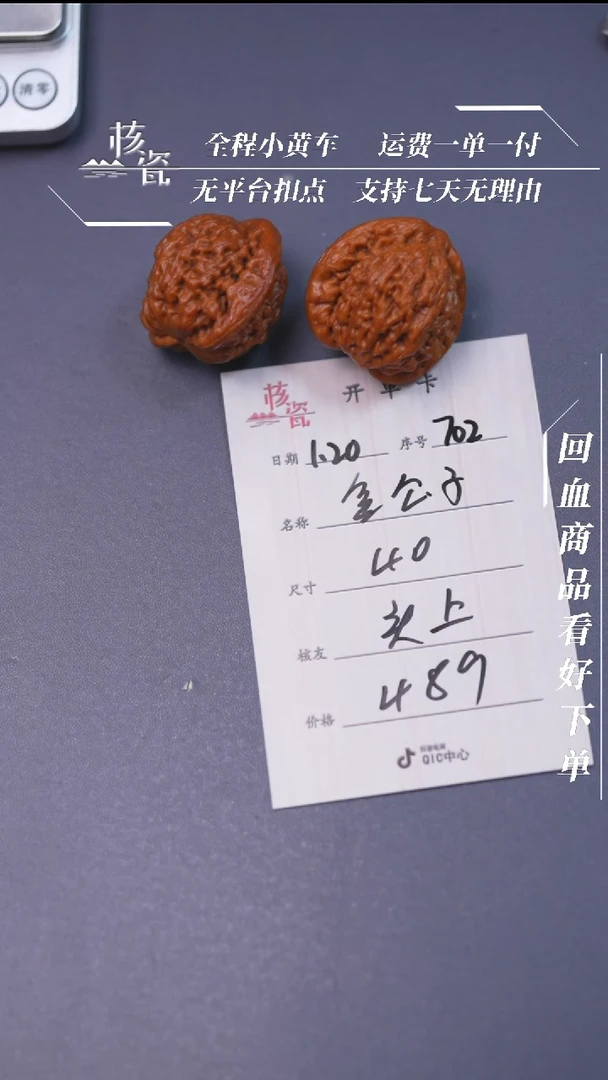 清零
核瓷
全程小黄车 运费一单一付
无平台扣点 支持七天无理由
核瓷
开单卡
日期 1.20 序号 702
名称 金公子
尺寸 40
核友 头上
价格 489
抖音电商
QIC中心
回血商品看好下单